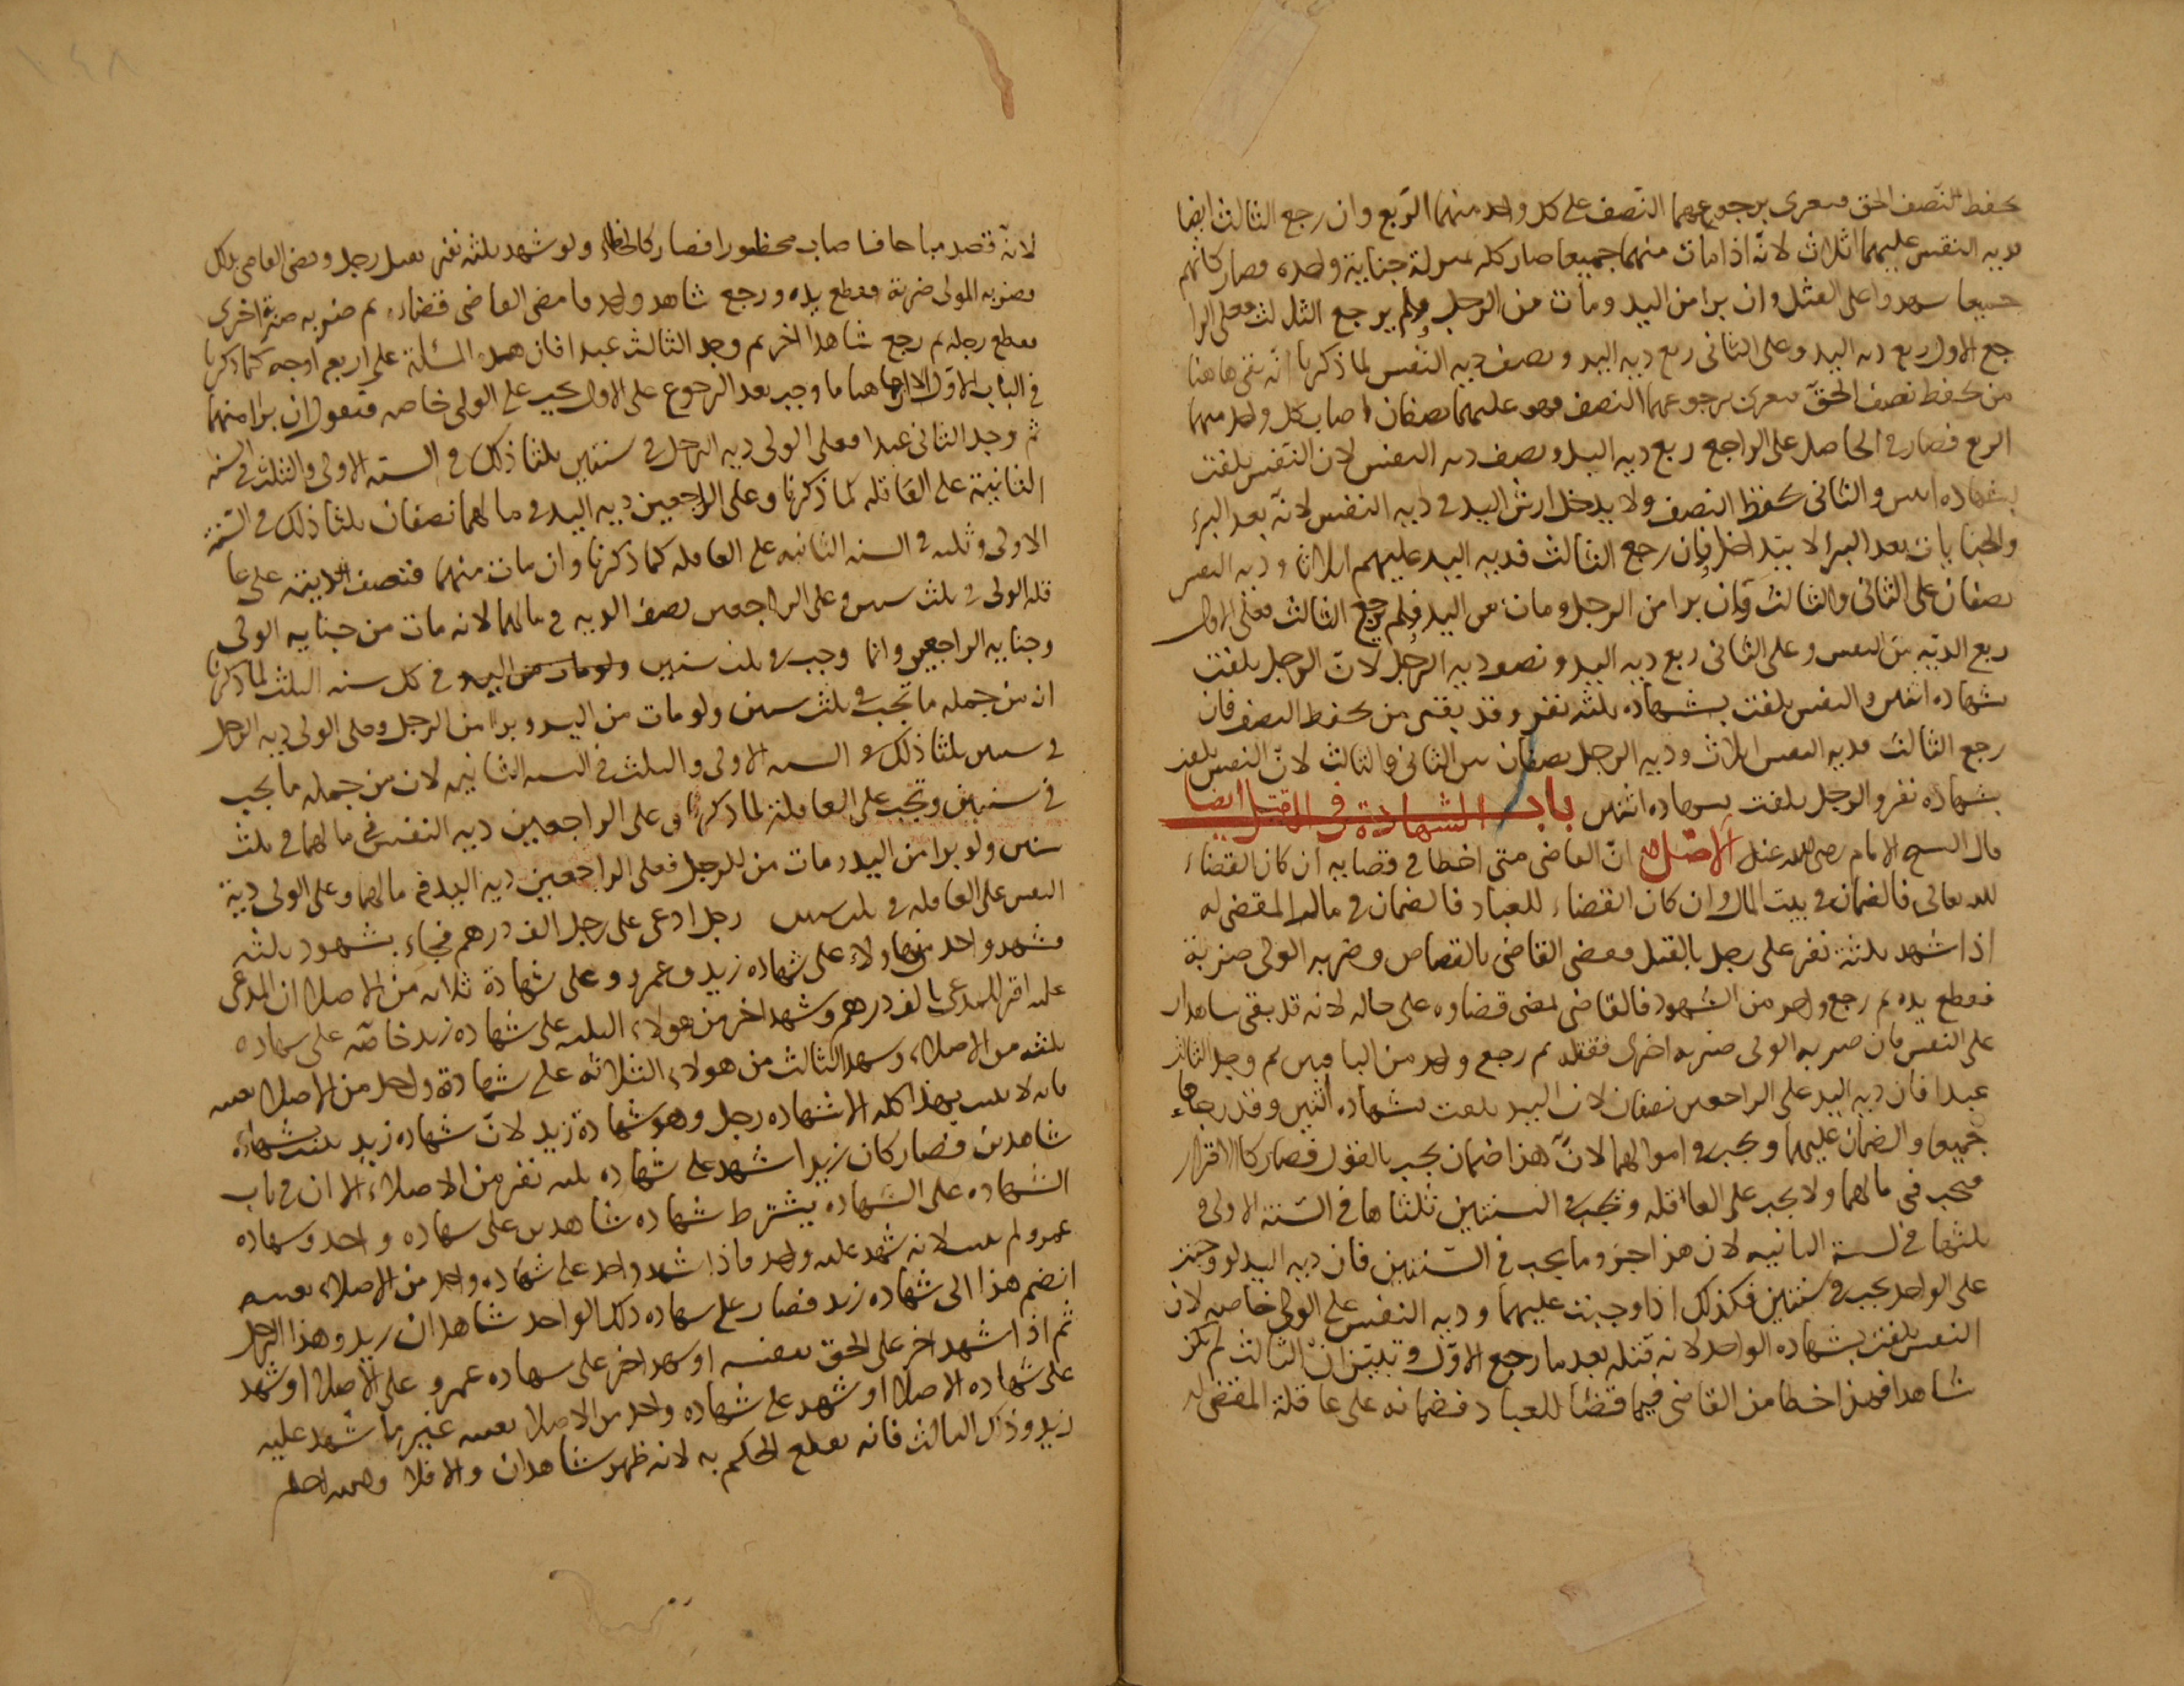 يحفظ نصف الحق فيغرى برجوعهما النصف على كل واحد منهما الربع وان رجع الثالث ايضا
فدية النفس عليهما اثلاث لانه اذا مات منهما جميعا صار كله بمنزلة جناية واحدة وصار كانهم
جميعا شهدوا على القتل وان برا من اليد ومات من الرجل ولم يرجع الثالث فعلى الرا
جع الاول ربع دية اليد وعلى الثانى ربع دية اليد ونصف دية النفس لما ذكرنا انه بقى هاهنا
من يحفظ نصف الحق فيغرى برجوعهما النصف وهو عليهما نصفان اصاب كل واحد منهما
الربع فصار فى الحاصل على الراجع ربع دية اليد ونصف دية النفس لان النفس تلفت
بشهادة اثنين والثانى يحفظ النصف ولا يدخل ارش اليد فى دية النفس لانه بعد البرء
والجنايات بعد البرا لا يتداخل فان رجع الثالث فدية اليد عليهم اثلاثا ودية النفس
نصفان على الثانى والثالث وان برا من الرجل ومات من اليد فلم يرجع الثالث فعلى الاول
ربع الدية من النفس وعلى الثانى ربع دية اليد ونصف دية الرجل لان الرجل تلفت
بشهادة اثنين والنفس تلفت بشهادة ثلثة نفر وقد بقى من يحفظ النصف فان
رجع الثالث فدية النفس اثلاث ودية الرجل نصفان بين الثانى والثالث لان النفس تلفت
بشهادة نفر والرجل تلفت بشهادة اثنين باب الشهادة فى القتل ايضا
قال الشيخ الامام رضى الله عنه الاصل ان القاضى متى اخطا فى قضايه ان كان القضاء
لله تعالى فالضمان فى بيت المال وان كان القضاء للعباد فالضمان فى مال المقضى له
اذا شهد ثلثة نفر على رجل بالقتل فقضى القاضى بالقصاص وضربه الولى ضربة
فقطع يده ثم رجع واحد من الشهود فالقاضى يمضى قضاوه على حاله لانه قد بقى شاهدان
على النفس فان ضربه الولى ضربة اخرى فقتله ثم رجع واحد من الباقين ثم وجد الثالث
عبدا فان دية اليد على الراجعين نصفان لان اليد تلفت بشهادة اثنين وقد رجعا
جميعا والضمان عليهما ويجب فى اموالهما لان هذا ضمان يجب بالقول فصار كالاقرار
فيجب فى مالهما ولا يجب على العاقلة ويجب فى السنتين ثلثاها فى السنة الاولى و
ثلثها فى السنة الثانية لان هذا جزء ما يجب فى السنتين فان دية اليد لو وجبت
على الواحد يجب فى سنتين فكذلك اذا وجبت عليهما ودية النفس على الولى خاصة لان
النفس تلفت بشهادة الواحد لانه قتله بعد ما رجع الاول وتبين ان الثالث لم يكن
شاهدا فهذا خطا من القاضى فيما قضا للعباد فضمانه على عاقلة المقضى له
لانه قصد مباحا فاصاب محظورا فصار كالخطاء ولو شهد ثلثة نفر بقتل رجل وقضى القاضى بذلك
فضربه المولى ضربة فقطع يده ورجع شاهد واحد فامضى القاضى قضاءه ثم ضربه ضربة اخرى
فقطع رجله ثم رجع شاهد اخر ثم وجد الثالث عبدا فان هذه المسئلة على اربع اوجه كما ذكرنا
فى الباب الاول الا ان هاهنا ما وجب بعد الرجوع على الاول يجب على الولى خاصة فنقول ان برا منهما
ثم وجد الثانى عبدا فعلى الولى دية الرجل فى سنتين ثلثا ذلك فى السنة الاولى والثلث فى السنة
الثانية على العاقلة لما ذكرنا وعلى الراجعين دية اليد فى مالهما نصفان ثلثا ذلك فى السنة
الاولى وثلثه فى السنة الثانية على العاقلة كما ذكرنا وان مات منهما فنصف الدية على عا
قلة الولى فى ثلث سنين وعلى الراجعين نصف الدية فى مالهما لانه مات من جناية الولى
وجناية الراجعين وانما وجب فى ثلث سنين ولو مات من اليد فى كل سنة الثلث لما ذكرنا
ان من جملة ما يجب فى ثلث سنين ولو مات من اليد وبرا من الرجل فعلى الولى دية الرجل
فى سنتين ثلثا ذلك فى السنة الاولى والثلث فى السنة الثانية لان من جملة ما يجب
فى سنتين وتجب على العاقلة لما ذكرنا وعلى الراجعين دية النفس فى مالهما فى ثلث
سنين ولو برا من اليد ومات من الرجل فعلى الراجعين دية اليد فى مالهما وعلى الولى دية
النفس على العاقلة فى ثلث سنين رجل ادعى على رجل الف درهم فجاء بشهود ثلثة
فشهد واحد من هاولاء على شهادة زيد وعمرو وعلى شهادة ثلاثة من الاصلاء ان المدعى
عليه اقر للمدعى بالف درهم وشهد اخر من هولاء الثلثة على شهادة زيد خاصة على شهادة
ثلثة من الاصلاء وشهد الثالث من هولاء الثلاثة على شهادة واحد من الاصلاء بعينه
فانه لا يثبت بهذا كله الا شهادة رجل وهو شهادة زيد لان شهادة زيد ثبتت بشهادة
شاهدين فصار كان زيدا شهد على شهادة ثلثة نفر من الاصلاء الا ان فى باب
الشهادة على الشهادة يشترط شهادة شاهدين على شهادة واحد وشهادة
عمرو لم يثبت لانه شهد عليه واحد فاذا شهد واحد على شهادة واحد من الاصلاء بعينه
انضم هذا الى شهادة زيد فصار على شهادة ذلك الواحد شاهدان زيد وهذا الرجل
ثم اذا شهد اخر على الحق بعينه او شهد اخر على شهادة عمرو على الاصلاء او شهد
على شهادة الاصلاء او شهد على شهادة واحد من الاصلاء بعينه غير ما شهد عليه
زيد وذلك الثالث فانه يقطع الحكم به لانه ظهر شاهدان والا فلا والله اعلم